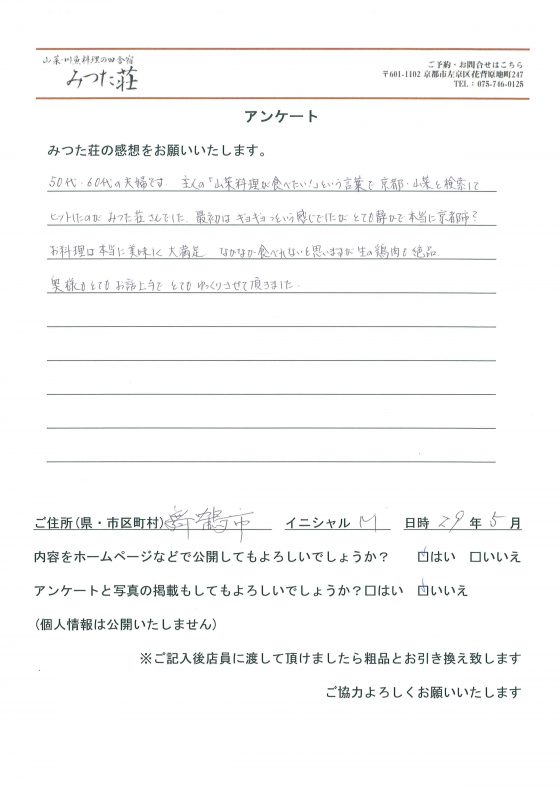 山菜・川魚料理の田舎宿
みつた荘
ご予約・お問合せはこちら
〒601-1102 京都市左京区花背原地町247
TEL：075-746-0125
アンケート
みつた荘の感想をお願いいたします。
50代・60代の夫婦です。主人の「山菜料理が食べたい！」という言葉で京都・山菜と検索して
ヒットしたのが みつた荘さんでした。最初は ギョギョっという感じでしたが とても静かで 本当に京都市？
お料理は本当に美味しく 大満足 なかなか食べれないと思いますが 生の鶏肉も絶品
奥様がとても お話上手で とても ゆっくりさせて頂きました。
ご住所(県・市区町村) 舞鶴市 イニシャル M 日時 29 年 5 月
内容をホームページなどで公開してもよろしいでしょうか？ ☑はい □いいえ
アンケートと写真の掲載もしてもよろしいでしょうか？□はい ☑いいえ
(個人情報は公開いたしません)
※ご記入後店員に渡して頂けましたら粗品とお引き換え致します
ご協力よろしくお願いいたします